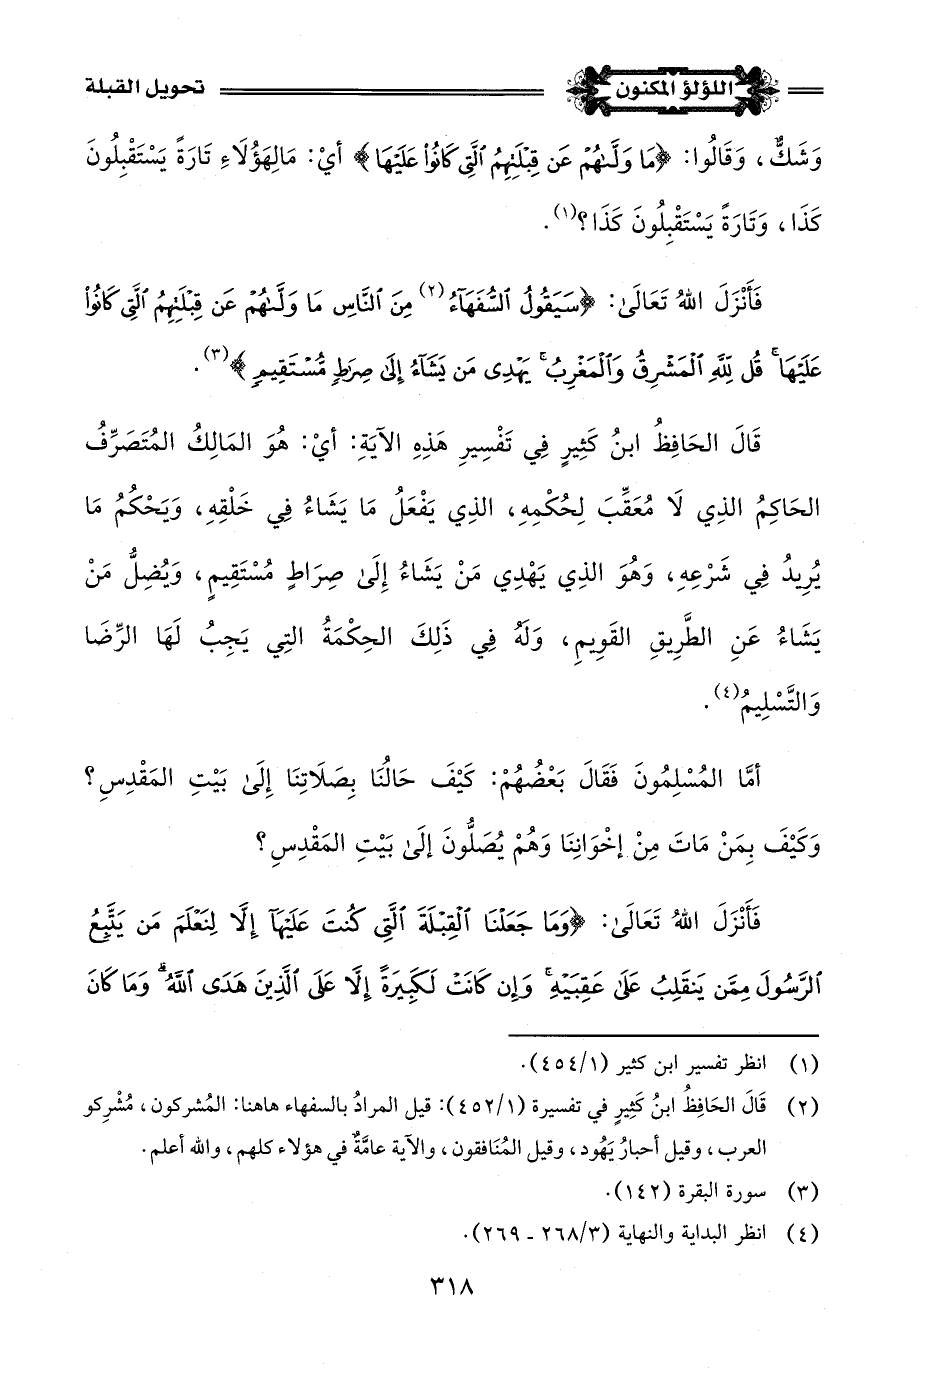 اللؤلؤ المكنون تحويل القبلة
وَشَكٌّ، وَقَالُوا: ﴿مَا وَلَّىٰهُمْ عَن قِبْلَتِهِمُ ٱلَّتِى كَانُوا۟ عَلَيْهَا﴾ أيْ: مَالِهَؤُلَاءِ تَارَةً يَسْتَقْبِلُونَ
كَذَا، وَتَارَةً يَسْتَقْبِلُونَ كَذَا؟(١).
فَأَنْزَلَ اللهُ تَعَالَىٰ: ﴿سَيَقُولُ ٱلسُّفَهَآءُ(٢) مِنَ ٱلنَّاسِ مَا وَلَّىٰهُمْ عَن قِبْلَتِهِمُ ٱلَّتِى كَانُوا۟
عَلَيْهَا ۚ قُل لِّلَّهِ ٱلْمَشْرِقُ وَٱلْمَغْرِبُ ۚ يَهْدِى مَن يَشَآءُ إِلَىٰ صِرَٰطٍ مُّسْتَقِيمٍ﴾(٣).
قَالَ الحَافِظُ ابنُ كَثِيرٍ فِي تَفْسِيرِ هَذِهِ الآيَةِ: أيْ: هُوَ المَالِكُ المُتَصَرِّفُ
الحَاكِمُ الذِي لَا مُعَقِّبَ لِحُكْمِهِ، الذِي يَفْعَلُ مَا يَشَاءُ فِي خَلْقِهِ، وَيَحْكُمُ مَا
يُرِيدُ فِي شَرْعِهِ، وَهُوَ الذِي يَهْدِي مَنْ يَشَاءُ إِلَىٰ صِرَاطٍ مُسْتَقِيمٍ، وَيُضِلُّ مَنْ
يَشَاءُ عَنِ الطَّرِيقِ القَوِيمِ، وَلَهُ فِي ذَلِكَ الحِكْمَةُ التِي يَجِبُ لَهَا الرِّضَا
وَالتَّسْلِيمُ(٤).
أمَّا المُسْلِمُونَ فَقَالَ بَعْضُهُمْ: كَيْفَ حَالُنَا بِصَلَاتِنَا إِلَىٰ بَيْتِ المَقْدِسِ؟
وَكَيْفَ بِمَنْ مَاتَ مِنْ إخْوَانِنَا وَهُمْ يُصَلُّونَ إلَىٰ بَيْتِ المَقْدِسِ؟
فَأَنْزَلَ اللهُ تَعَالَىٰ: ﴿وَمَا جَعَلْنَا ٱلْقِبْلَةَ ٱلَّتِى كُنتَ عَلَيْهَآ إِلَّا لِنَعْلَمَ مَن يَتَّبِعُ
ٱلرَّسُولَ مِمَّن يَنقَلِبُ عَلَىٰ عَقِبَيْهِ ۚ وَإِن كَانَتْ لَكَبِيرَةً إِلَّا عَلَى ٱلَّذِينَ هَدَى ٱللَّهُ ۗ وَمَا كَانَ
(١) انظر تفسير ابن كثير (٤٥٤/١).
(٢) قَالَ الحَافِظُ ابنُ كَثِيرٍ في تفسيرة (٤٥٢/١): قيل المرادُ بالسفهاء هاهنا: المُشركون، مُشْرِكو
العرب، وقيل أحبارُ يَهُود، وقيل المُنَافقون، والآية عامَّةٌ في هؤلاء كلهم، والله أعلم.
(٣) سورة البقرة (١٤٢).
(٤) انظر البداية والنهاية (٢٦٨/٣ - ٢٦٩).
٣١٨